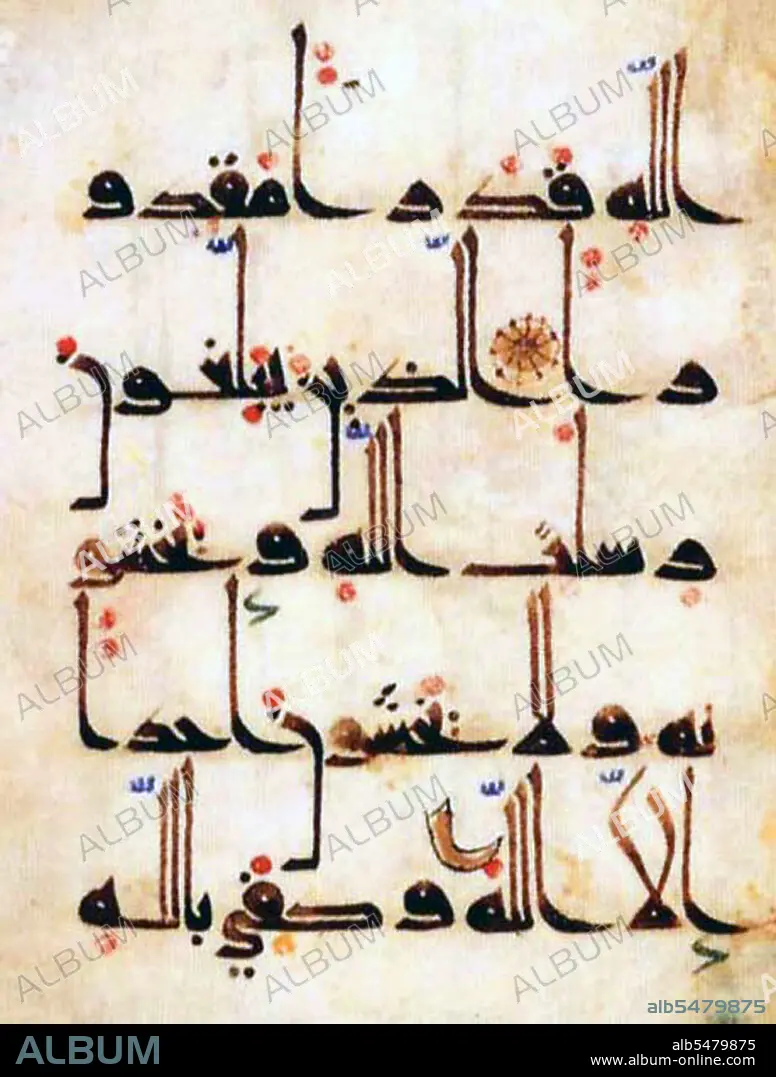 الله قدرا مقدو
را الذين يبلغون
رسلت الله ويخشو
نه ولا يخشون احدا
الا الله وكفى بالله
alb5479875
ALBUM
alb5479875
www.album-online.com